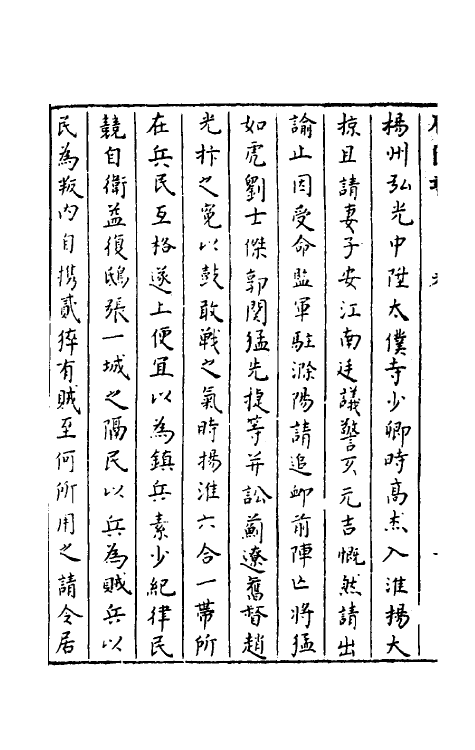 揚州弘光中陞太僕寺少卿時高杰入淮揚大
掠且請妻子安江南廷議警亥元吉慨然請出
諭止因受命監軍駐滁陽請追卹前陣亡將猛
如虎劉士傑郭関猛先捷等并訟薊遼舊督趙
光抃之冤以鼓敢戰之氣時揚淮六合一帶所
在兵民互格遂上便宜以為鎮兵素少紀律民
競自衛益復鴟張一城之隔民以兵為賊兵以
民為叛內自擕貳猝有賊至何所用之請令居